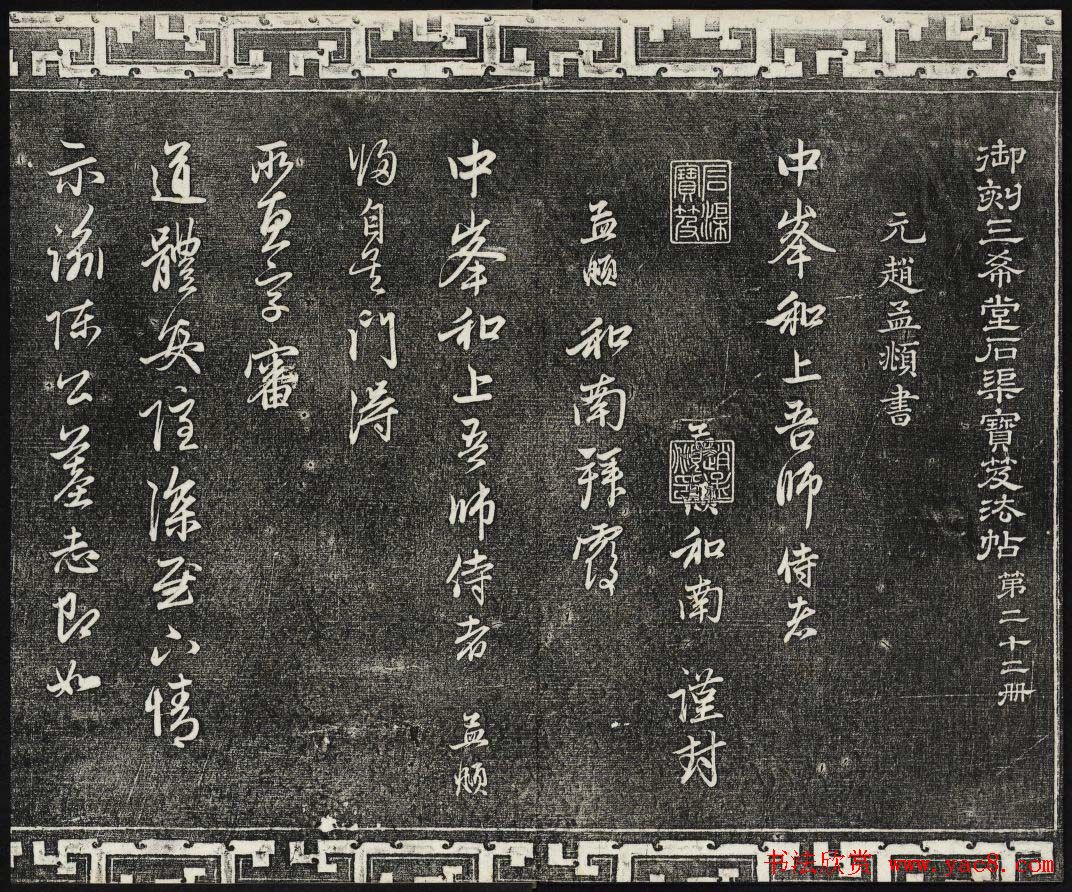 御刻三希堂石渠寶笈法帖 第二十二冊
元趙孟頫書
中峯和上吾師侍者
石渠寶笈
和南 謹封
趙孟頫印
孟頫 和南拜覆
中峯和上吾師侍者 孟頫
歸自吳門得
所惠字審
道體安隱深慰下情
示諭陳公墓志即如
书法欣赏 www.yac8.com